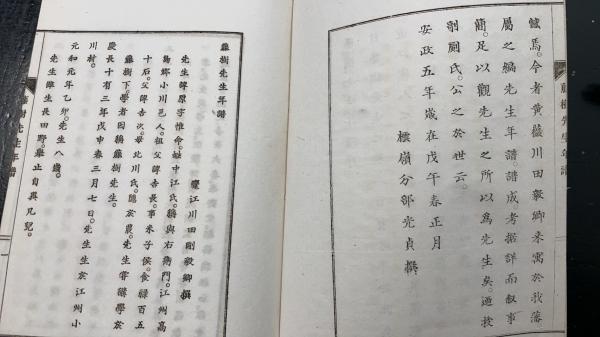 焉。今者黄薇川田毅卿来寓於我藩
屬之編先生年譜。譜成。考據詳而叙事
簡。足以觀先生之所以爲先生矣。迺授
剞劂氏。公之於世云。
安政五年歳在戊午春正月
櫻嶺分部光貞撰
藤樹先生年譜
藤樹先生年譜
甕江川田剛毅卿撰
先生諱原字惟命。姓中江氏。稱與右衞門。江州高
嶋郷小川邑人。祖父諱吉長。事米子侯。食祿百五
十石。父諱吉次。母北川氏。隱於農。先生嘗講學於
藤樹下。學者因稱藤樹先生。
慶長十有三年戊申春三月七日。先生生於江州小
川村。
元和元年乙卯。先生八歳。
先生雖生長田野。舉止自異凡兒。
藤樹先生年譜